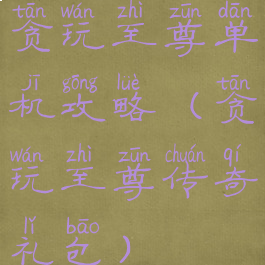 tān wán zhì zūn dān
贪玩至尊单
jī gōng lüè tān
机攻略（贪
wán zhì zūn chuán qí
玩至尊传奇
lǐ bāo
礼包）